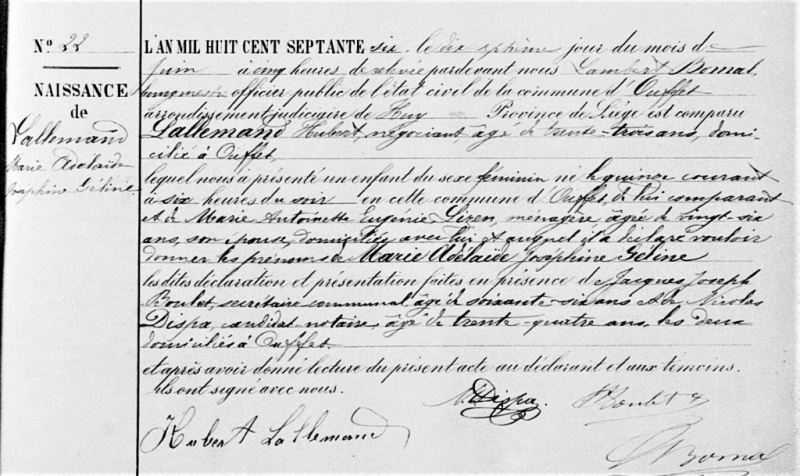 N° 22
NAISSANCE
de
Lallemand
Marie Adelaïde
Josephine Géline
L'AN MIL HUIT CENT SEPTANTE six le dix septième jour du mois de
Juin à cinq heures de relevée pardevant nous Lambert Bomal,
bourgmestre officier public de l'état civil de la commune d'Ouffet
arrondissement judiciaire de Huy Province de Liége est comparu
Lallemand Hubert, négociant, âgé de trente-trois ans, domi-
cilié à Ouffet,
lequel nous a présenté un enfant du sexe féminin né le quinze courant
à six heures du soir en cette commune d'Ouffet de lui comparant
et de Marie Antoinette Eugénie Lizen, ménagère, âgée de vingt-six
ans, son épouse, domiciliée avec lui et auquel il a déclaré vouloir
donner les prénoms de Marie Adélaïde Josephine Géline
les dites déclaration et présentation faites en présence de Jacques Joseph
Boulet, secrétaire communal, âgé de soixante-six ans et de Nicolas
Dispa, candidat-notaire, âgé de trente-quatre ans, les deux
domiciliés à Ouffet
et après avoir donné lecture du présent acte au déclarant et aux témoins.
Ils ont signé avec nous.
N. Dispa. Boulet
Hubert Lallemand
L Bomal